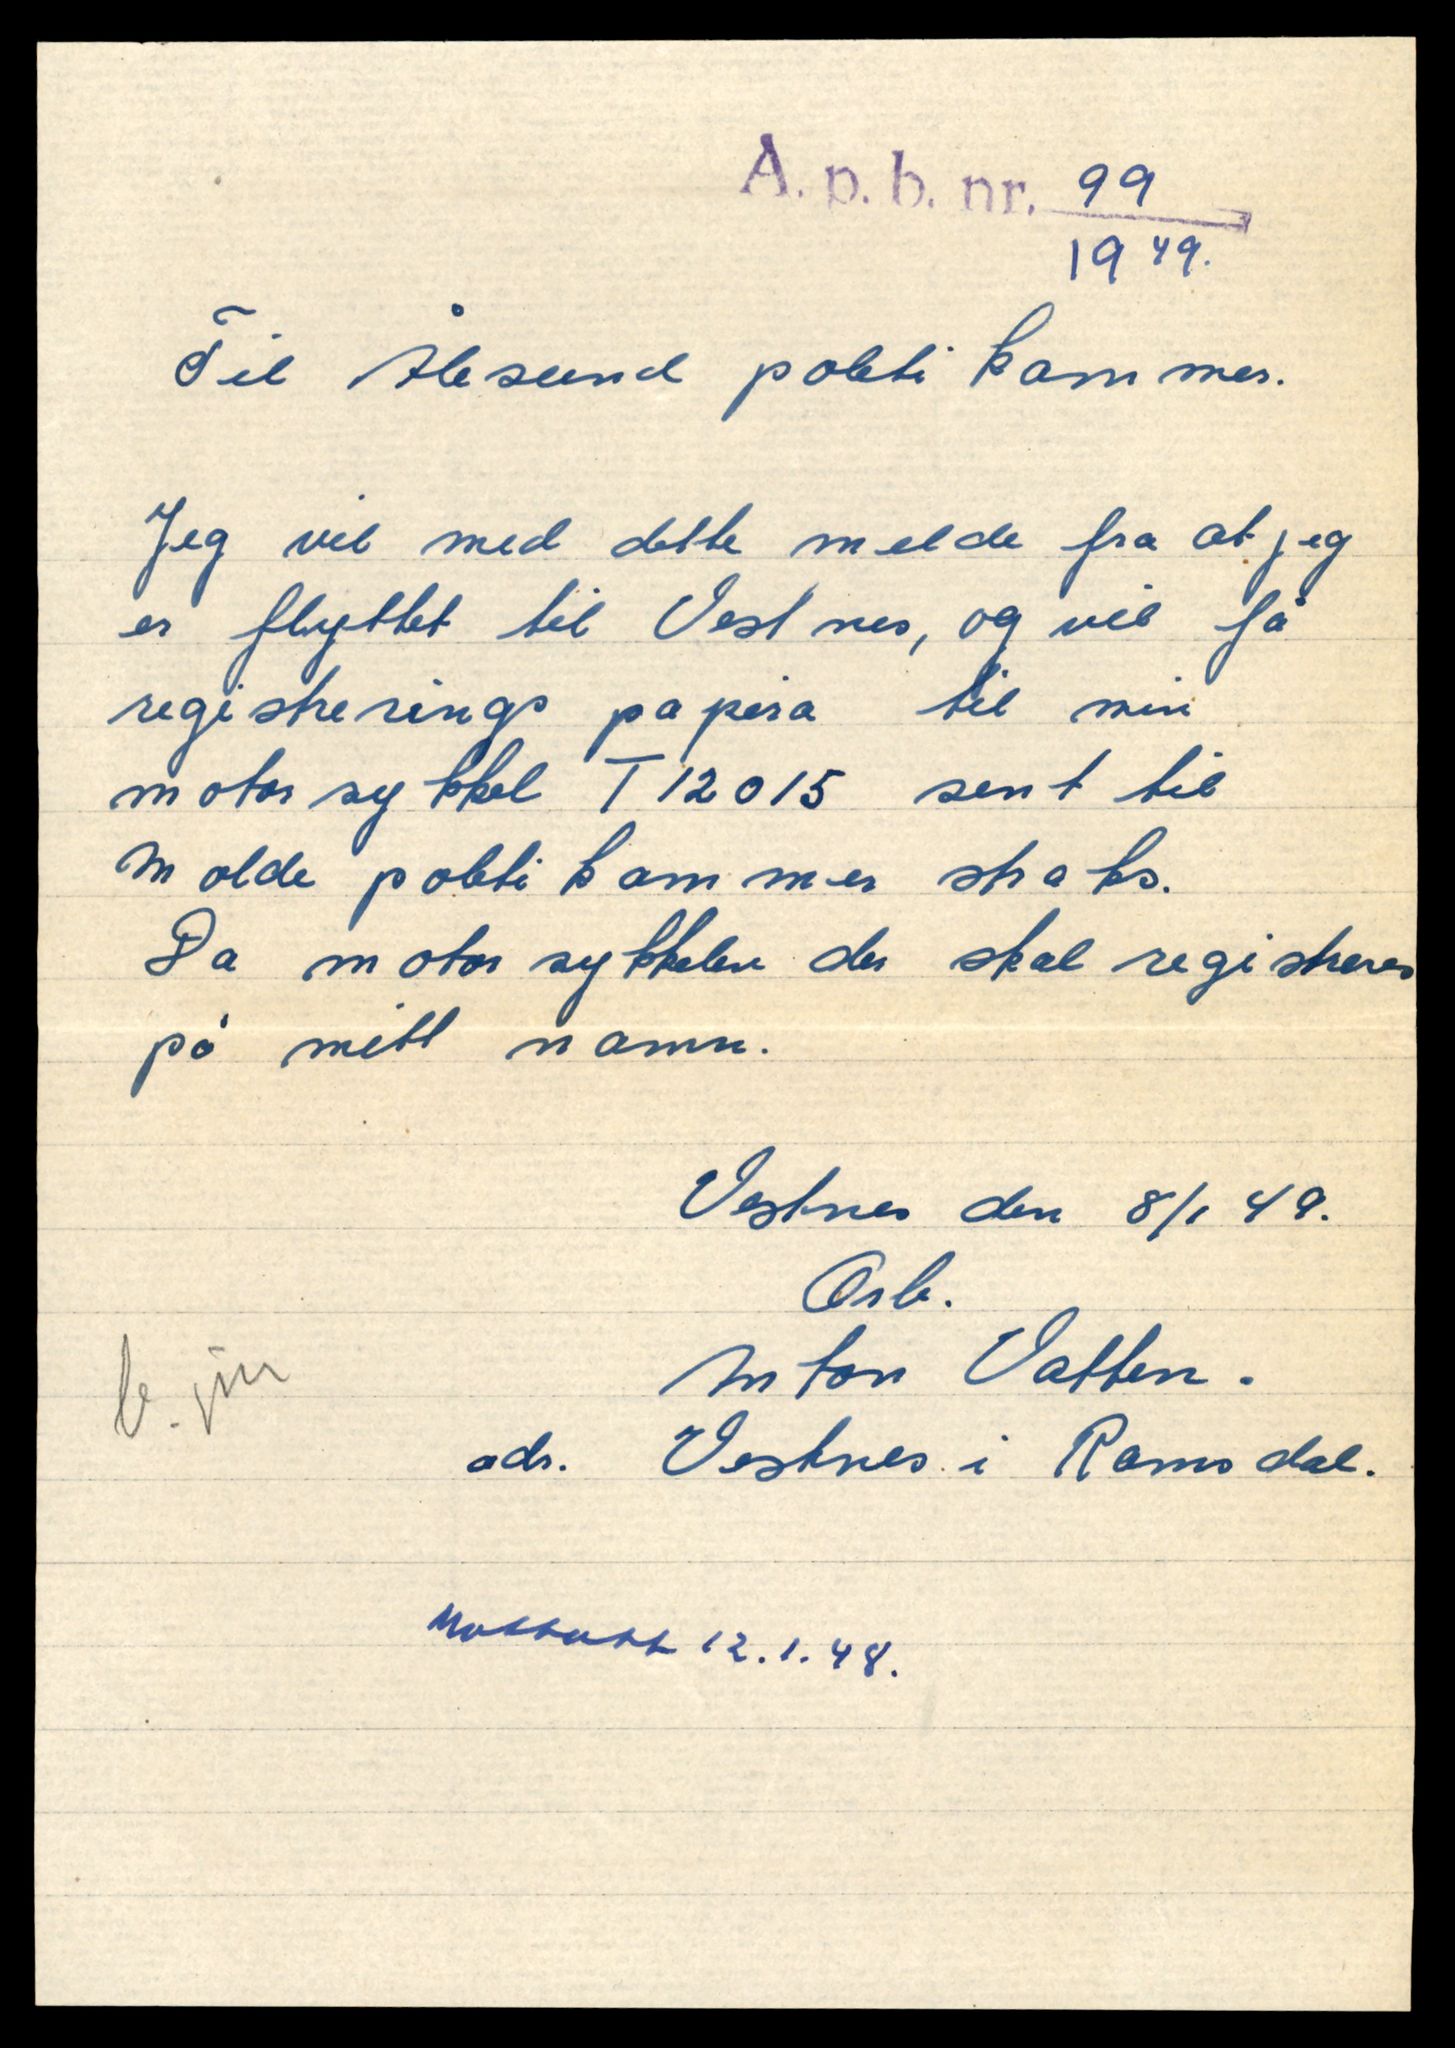 A. p. b. nr. 99
1949.
Til Ålesund politi kammer.
Jeg vil med dette melde fra at jeg
er flyttet til Vestnes, og vil få
registrerings papira til min
motorsykkel T 12015 sent til
Molde politi kammer straks.
Da motorsykkelen der skal registreres
på mitt namn.
Vestnes den 8/1 49.
Ærb.
Anton Vatten.
adr. Vestnes i Ramsdal.
Mottatt 12.1.48.